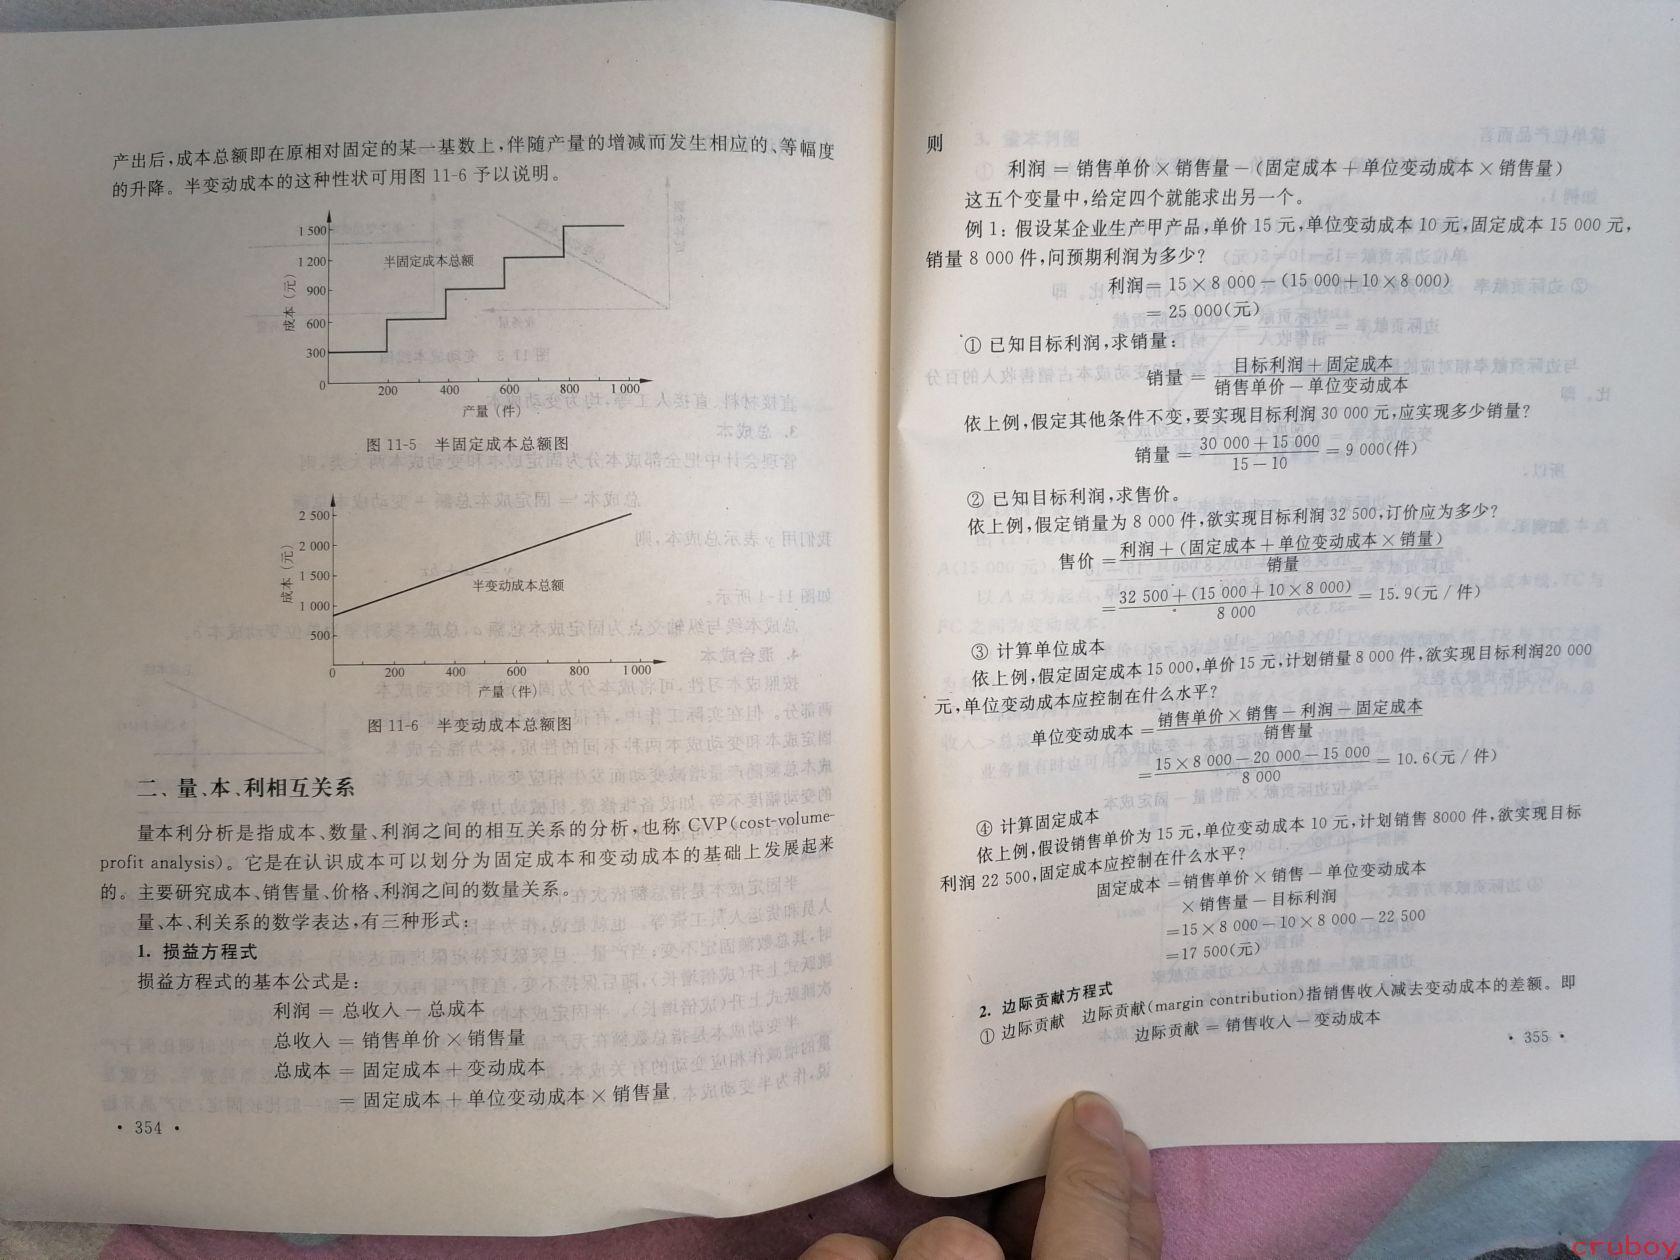 产出后,成本总额即在原相对固定的某一基数上,伴随产量的增减而发生相应的、等幅度
的升降。半变动成本的这种性状可用图 11-6 予以说明。
1 500
1 200
900
600
300
0
成本（元）
半固定成本总额
200 400 600 800 1 000
产量（件）
图 11-5 半固定成本总额图
2 500
2 000
1 500
1 000
500
成本（元）
半变动成本总额
0 200 400 600 800 1 000
产量（件）
图 11-6 半变动成本总额图
二、量、本、利相互关系
量本利分析是指成本、数量、利润之间的相互关系的分析,也称 CVP(cost-volume-
profit analysis)。它是在认识成本可以划分为固定成本和变动成本的基础上发展起来
的。主要研究成本、销售量、价格、利润之间的数量关系。
量、本、利关系的数学表达,有三种形式:
1. 损益方程式
损益方程式的基本公式是:
利润 = 总收入 － 总成本
总收入 = 销售单价 × 销售量
总成本 = 固定成本 + 变动成本
= 固定成本 + 单位变动成本 × 销售量
· 354 ·
则
利润 = 销售单价 × 销售量 － (固定成本 + 单位变动成本 × 销售量)
这五个变量中,给定四个就能求出另一个。
例 1: 假设某企业生产甲产品,单价 15 元,单位变动成本 10 元,固定成本 15 000 元,
销量 8 000 件,问预期利润为多少?
利润 = 15 × 8 000 － (15 000 + 10 × 8 000)
= 25 000(元)
① 已知目标利润,求销量:
销量 = 目标利润 + 固定成本
销售单价 － 单位变动成本
依上例,假定其他条件不变,要实现目标利润 30 000 元,应实现多少销量?
销量 = 30 000 + 15 000 = 9 000(件)
15 － 10
② 已知目标利润,求售价。
依上例,假定销量为 8 000 件,欲实现目标利润 32 500,订价应为多少?
售价 = 利润 + (固定成本 + 单位变动成本 × 销量)
销量
= 32 500 + (15 000 + 10 × 8 000) = 15.9(元 / 件)
8 000
③ 计算单位成本
依上例,假定固定成本 15 000,单价 15 元,计划销量 8 000 件,欲实现目标利润20 000
元,单位变动成本应控制在什么水平?
单位变动成本 = 销售单价 × 销售 － 利润 － 固定成本
销售量
= 15 × 8 000 － 20 000 － 15 000 = 10.6(元 / 件)
8 000
④ 计算固定成本
依上例,假设销售单价为 15 元,单位变动成本 10 元,计划销售 8000 件,欲实现目标
利润 22 500,固定成本应控制在什么水平?
固定成本 = 销售单价 × 销售 － 单位变动成本
× 销售量 － 目标利润
= 15 × 8 000 － 10 × 8 000 － 22 500
= 17 500(元)
2. 边际贡献方程式
① 边际贡献 边际贡献(margin contribution)指销售收入减去变动成本的差额。即
边际贡献 = 销售收入 － 变动成本
· 355 ·
cruboy